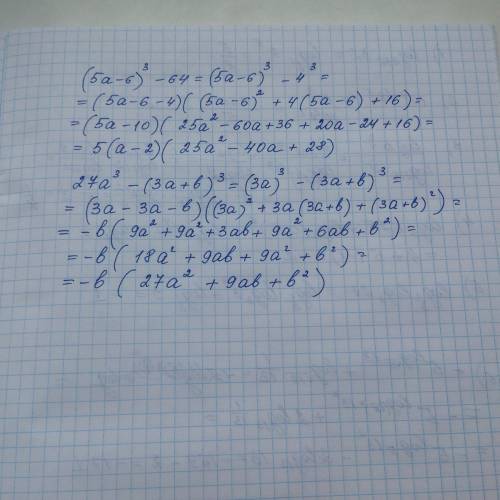 (5a-6)³ - 64 = (5a-6)³ - 4³ =
= (5a-6-4)((5a-6)² + 4(5a-6) + 16) =
= (5a-10)(25a² - 60a + 36 + 20a - 24 + 16) =
= 5(a-2)(25a² - 40a + 28)
27a³ - (3a+b)³ = (3a)³ - (3a+b)³ =
= (3a - 3a - b)((3a)² + 3a(3a+b) + (3a+b)²) =
= -b(9a² + 9a² + 3ab + 9a² + 6ab + b²) =
= -b(18a² + 9ab + 9a² + b²) =
= -b(27a² + 9ab + b²)